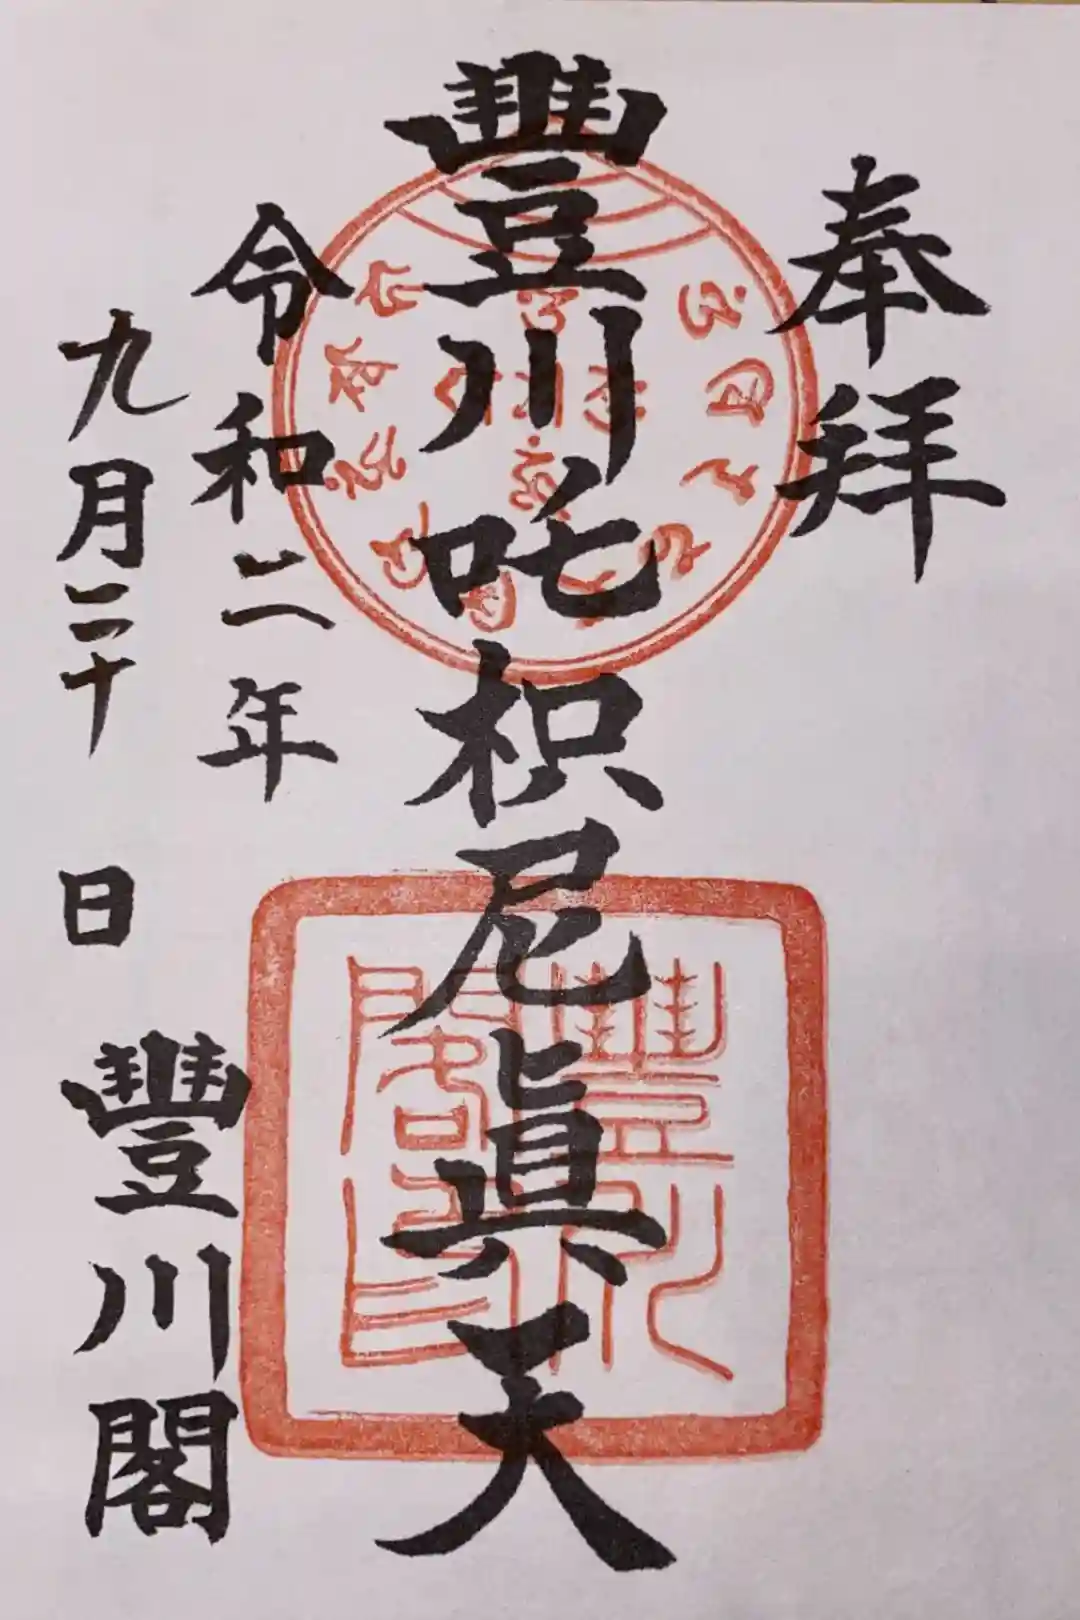 奉拜
豐川吒枳尼眞天
令和二年
九月二十日
豐川閣
豐川閣印